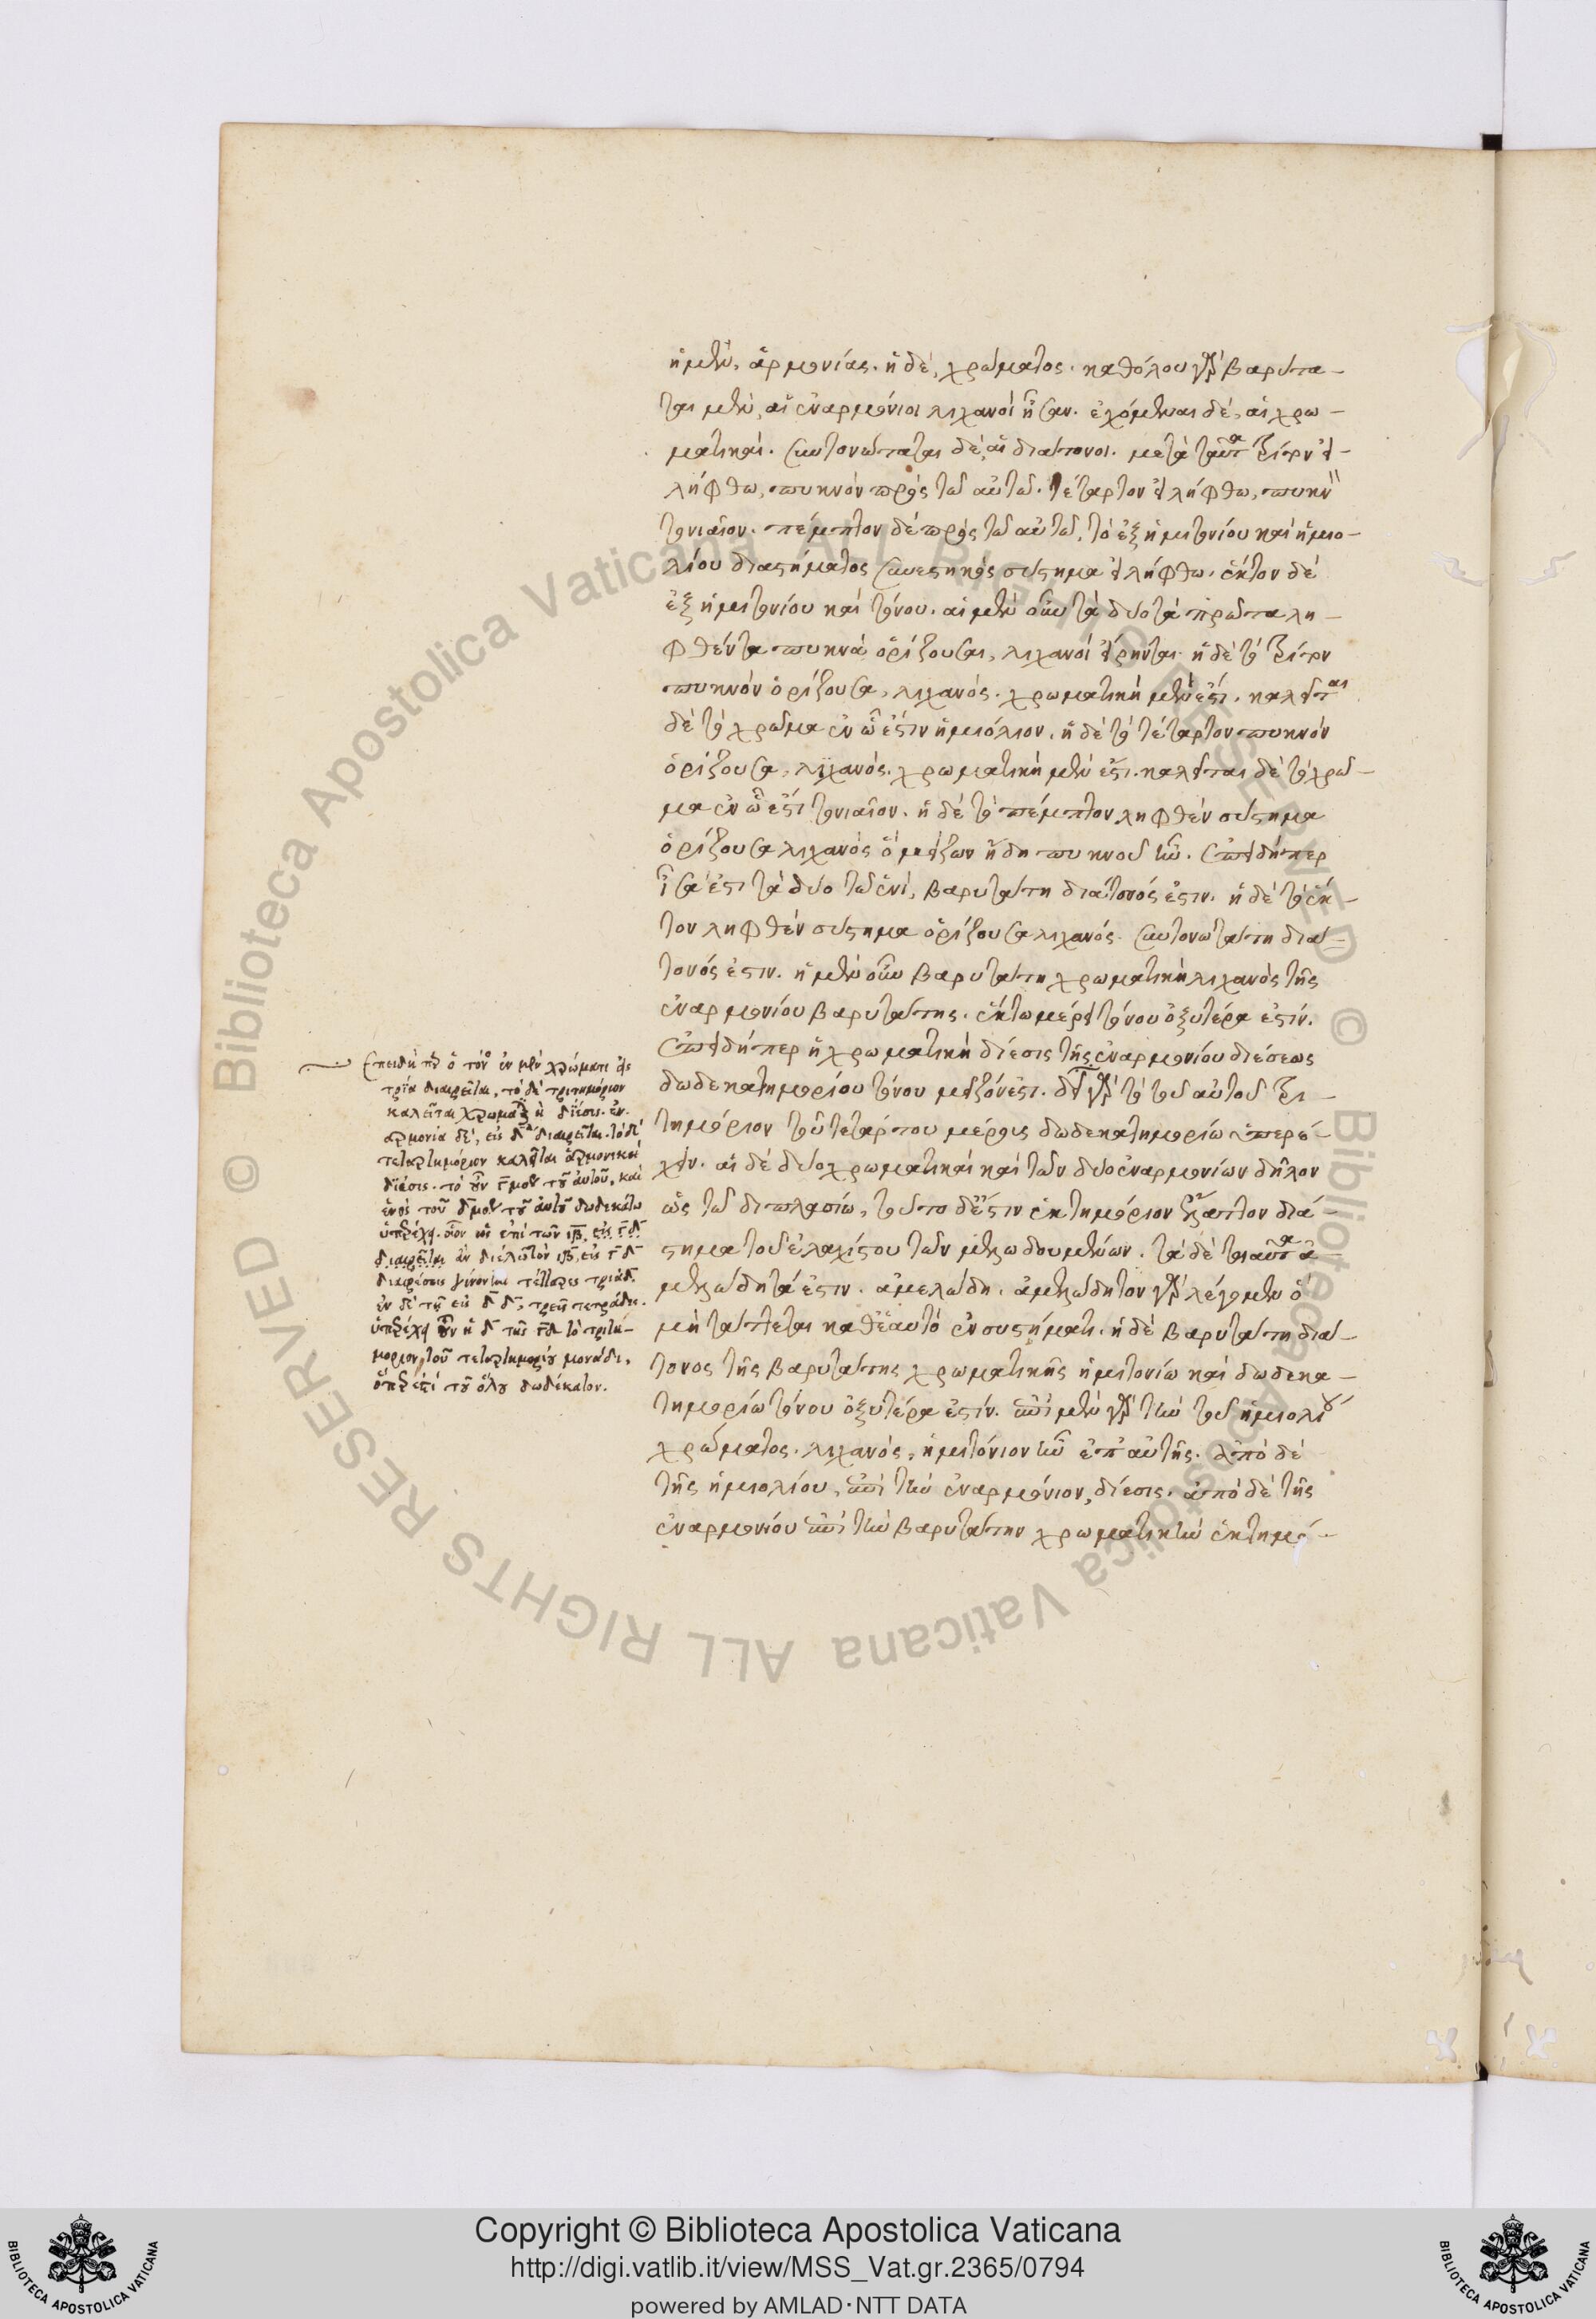 ἡ μὲν, ἁρμονίας. ἡ δὲ, χρώματος. καθόλου γὰρ βαρύτα-
ται μὲν, αἱ ἐναρμόνιοι λιχανοὶ ἦσαν. ἐχόμεναι δὲ, αἱ χρω-
ματικαί. συντονώταται δὲ, αἱ διάτονοι. μετὰ ταῦτα τρίτον εἰ-
λήφθω, πυκνὸν πρὸς τῶ αὐτῶ. τέταρτον εἰλήφθω, πυκνὸν
τονιαῖον. πέμπτον δὲ πρὸς τῶ αὐτῶ, τὸ ἐξ ἡμιτονίου καὶ ἡμιο-
λίου διαστήματος συνεστηκὸς σύστημα εἰλήφθω. ἕκτον δὲ
ἐξ ἡμιτονίου καὶ τόνου. αἱ μὲν οὖν τὰ δύο τὰ πρῶτα λη-
φθέντα πυκνὰ ὁρίζουσαι, λιχανοὶ εἴρηνται. ἡ δὲ τὸ τρίτον
πυκνὸν ὁρίζουσα, λιχανὸς. χρωματικὴ μέν ἐστι. καλεῖται
δὲ τὸ χρῶμα ἐν ᾧ ἐστιν ἡμιόλιον. ἡ δὲ τὸ τέταρτον πυκνὸν
ὁρίζουσα, λιχανὸς. χρωματικὴ μέν ἐστι. καλεῖται δὲ τὸ χρῶ-
μα ἐν ᾧ ἐστι τονιαῖον. ἡ δὲ τὸ πέμπτον ληφθὲν σύστημα
ὁρίζουσα λιχανὸς ὃ μεῖζων ἤδη πυκνοῦ ἦν. ἐπειδήπερ
ἴσα ἐστι τὰ δύο τῶ ἑνί, βαρυτάτη διάτονός ἐστιν. ἡ δὲ τὸ ἕκ-
τον ληφθὲν σύστημα ὁρίζουσα λιχανὸς. συντονωτάτη διά-
τονός ἐστιν. ἡ μὲν οὖν βαρυτάτη χρωματικὴ λιχανὸς τῆς
ἐναρμονίου βαρυτάτης. ἕκτω μέρει τόνου ὀξυτέρα ἐστίν.
ἐπειδήπερ ἡ χρωματικὴ δίεσις τῆς ἐναρμονίου διέσεως
δωδεκατημορίου τόνου μεῖζόν ἐστι. δεῖ γὰρ τὸ τοῦ αὐτοῦ τρι-
τημόριον τοῦ τετάρτου μέρους δωδεκατημορίω ὑπερέ-
χειν. αἱ δὲ δύο χρωματικαὶ καὶ τῶν δύο ἐναρμονίων δῆλον
ὡς τῶ διπλασίω, τοῦτο δέ ἐστιν ἑκτημόριον ἔλαττον διά-
στημα τοῦ ἐλαχίστου τῶν μελωδουμένων. τὰ δὲ τοιαῦτα ἀ-
μελώδητά ἐστιν. ἀμελώδη. ἀμελώδητον γὰρ λέγομεν ὃ
μὴ τάττεται καθ' ἑαυτὸ ἐν συστήματι. ἡ δὲ βαρυτάτη διά-
τονος τῆς βαρυτάτης χρωματικῆς ἡμιτονίω καὶ δωδεκα-
τημορίω τόνου ὀξυτέρα ἐστίν. ἐπὶ μὲν γὰρ τὴν τοῦ ἡμιολίου
χρώματος. λιχανὸς, ἡμιτόνιον ἦν ἐπ' αὐτῆς. ἀπὸ δὲ
τῆς ἡμιολίου, ἐπὶ τὴν ἐναρμόνιον, δίεσις. ἀπὸ δὲ τῆς
ἐναρμονίου ἐπὶ τὴν βαρυτάτην χρωματικὴν ἑκτημό-
ἐπειδήπερ ὁ τόνος ἐν μὲν χρώματι εἰς
τρία διαιρεῖται, τὸ δὲ τριτημόριον
καλεῖται χρωματικὴ δίεσις. ἐν
ἁρμονία δὲ, εἰς δ διαιρεῖται. τὸ δὲ
τεταρτημόριον καλεῖται ἁρμονικὴ
δίεσις. τὸ οὖν γ μον τοῦ αὐτοῦ, καὶ
ἑνὸς τοῦ δ μον τοῦ αὐτοῦ δωδεκάτω
ὑπερέχει. οἷον ὡς ἐπὶ τῶν ιβ, εἰς γ δ
διαιρεῖται ἂν διέλω τὸν ιβ, εἰς γ δ
διαιρέσεις γίνονται τέτταρες τριάδ
ἐν δὲ τῆ εἰς δ δ, τρεῖς τετράδες.
ὑπερέχει οὖν ἡ δ τῆς γ τὸ τριτη-
μόριον, τοῦ τεταρτημορίου μονάδι,
ὅπερ ἐστὶ τοῦ ὅλου δωδέκατον.
Copyright © Biblioteca Apostolica Vaticana
http://digi.vatlib.it/view/MSS_Vat.gr.2365/0794
powered by AMLAD·NTT DATA
BIBLIOTECA APOSTOLICA VATICANA
BIBLIOTECA APOSTOLICA VATICANA
© Biblioteca Apostolica Vaticana ALL RIGHTS RESERVED
© Biblioteca Apostolica Vaticana ALL RIGHTS RESERVED